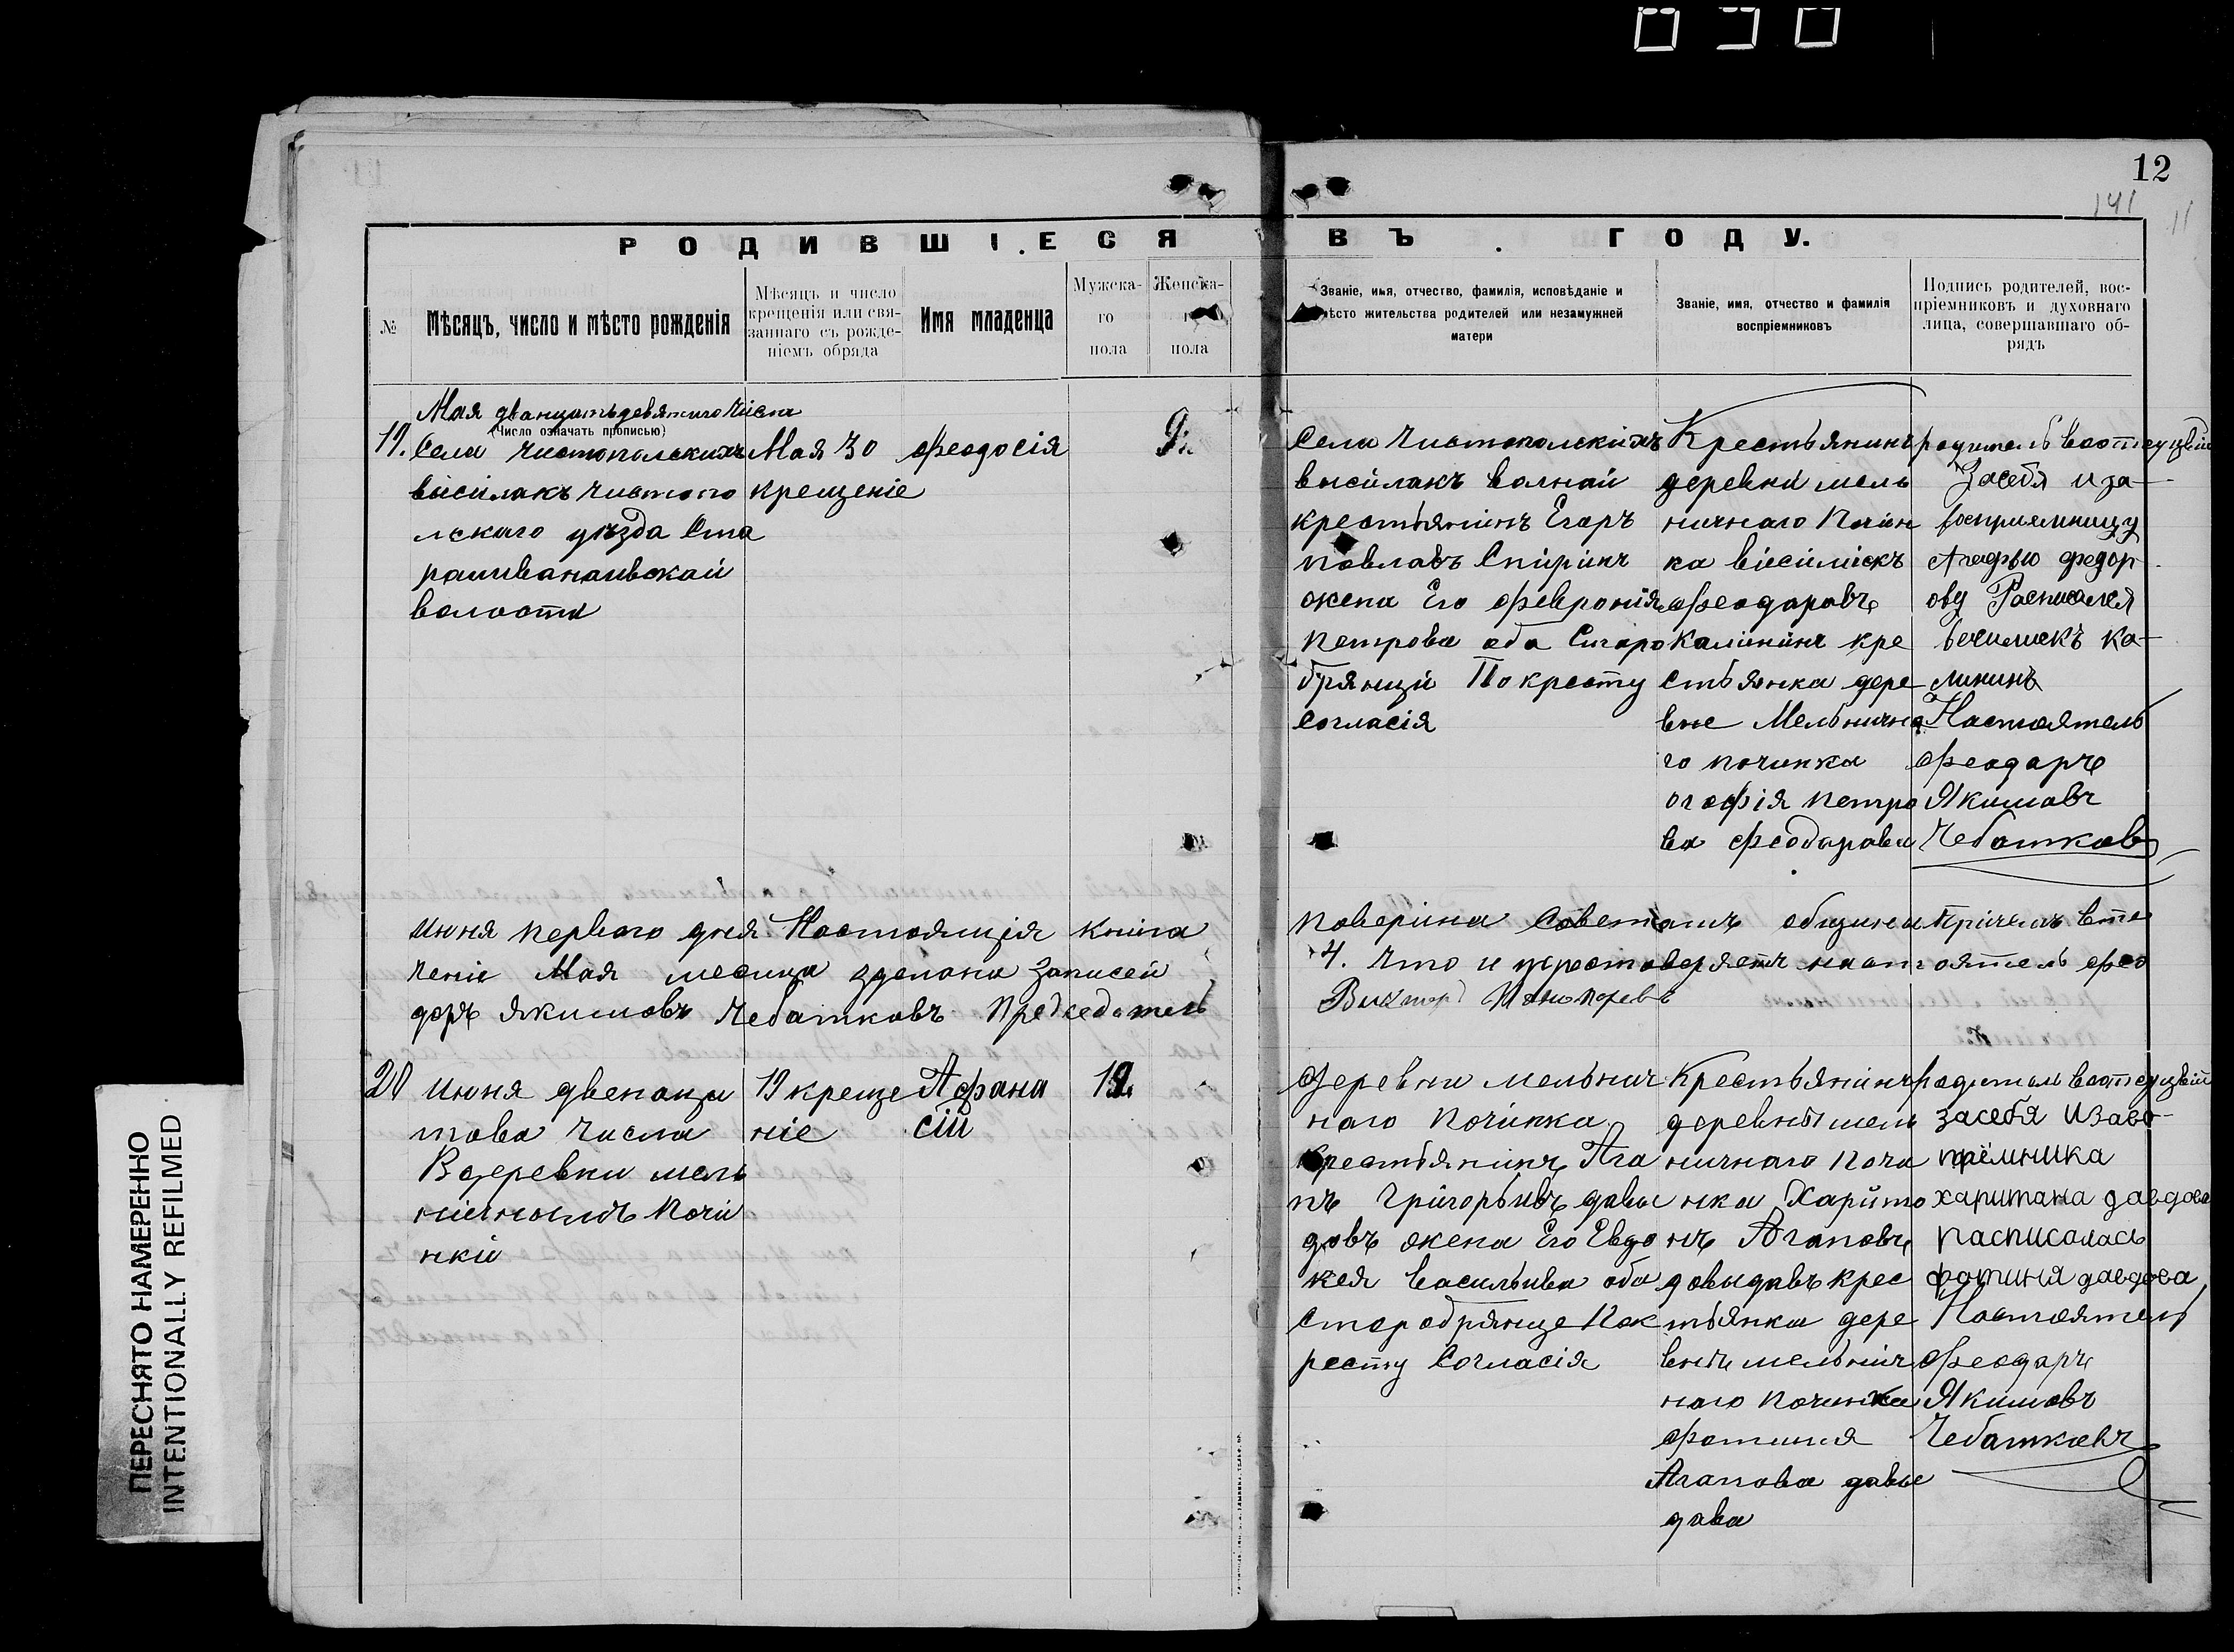 12
141
11
РОДИВШІЕСЯ ВЪ ГОДУ.
№
Мѣсяцъ, число и мѣсто рожденія
Мѣсяцъ и число
крещенія или свя-
заннаго съ рожде-
ніемъ обряда
Имя младенца
Мужска-
го
пола
Женска-
пола
Званіе, имя, отчество, фамилія, исповѣданіе и
мѣсто жительства родителей или незамужней
матери
Званіе, имя, отчество и фамилія
воспріемниковъ
Подпись родителей, вос-
пріемниковъ и духовнаго
лица, совершавшаго об-
рядъ
Мая дванцатьдевятиго числа
(Число означать прописью)
19.
Села Чистопольскихъ
висилакъ чистопо
льскаго уѣзда Ста
раиванаивскай
воласти
Мая 30
крещеніе
Феодосія
9
Села Чистопольскихъ
висилакъ валнай
крестьянинъ Егаръ
Павлавъ Спиринъ
жена Его Февронія
Петрова оба Старо
брянци По кресту
согласія
Крестьянинъ
деревни мель
ничнаго Почин
ка висилискъ
Феодаровъ
Калининъ кре
стьянка дере
вне Мельнична
го починка
огофія петро
ва Феодарава
родитель
Засебя и за
восприемницу
Агафью федор
ову Расписалея
вечилискъ ка-
лининъ
Настоятель
Феодаръ
Якимовъ
Чебатковъ
Июня перваго дня Настоящія книга
поверина Советамъ общины причемъ вте
чени Мая месица зделана записей
4. что и удостоверяетъ настоятель фео
доръ якимовъ Чебатковъ Председатель
Викторъ
20
Июня двенаца
това числа
В деревни мель
ничномъ почи
нки
19 креще
ніе
Афана
сій
12
Деревни мельнич
наго Починка
крестьянинъ Ага
пъ Григорьивъ давы
довъ жена Его Евдо
кея васильива оба
старобрянце Пок
ресту Согласія
Крестьянинъ
деревны мель
ничнаго Почи
нка Харито
нъ Агаповъ
довыдавъ крес
тьянка дере
вни мельнич
наго починка
Фатиния
Агапова давы
дава
родитель
засебя изаво-
приёмника
харитана давдова
расписалась
фотиния давдова
Настоятель
Феодаръ
Якимовъ
Чебатковъ
ПЕРЕСНЯТО НАМЕРЕННО
INTENTIONALLY REFILMED